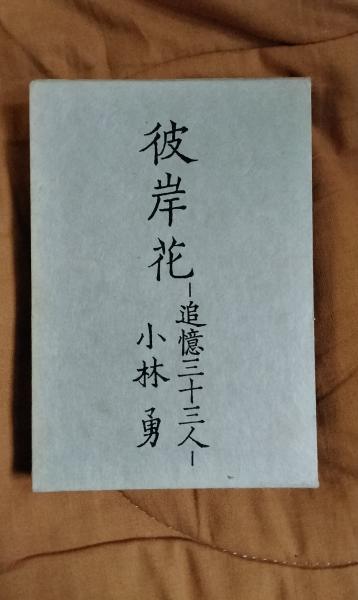 彼岸花
—追憶三十三人—
小林勇